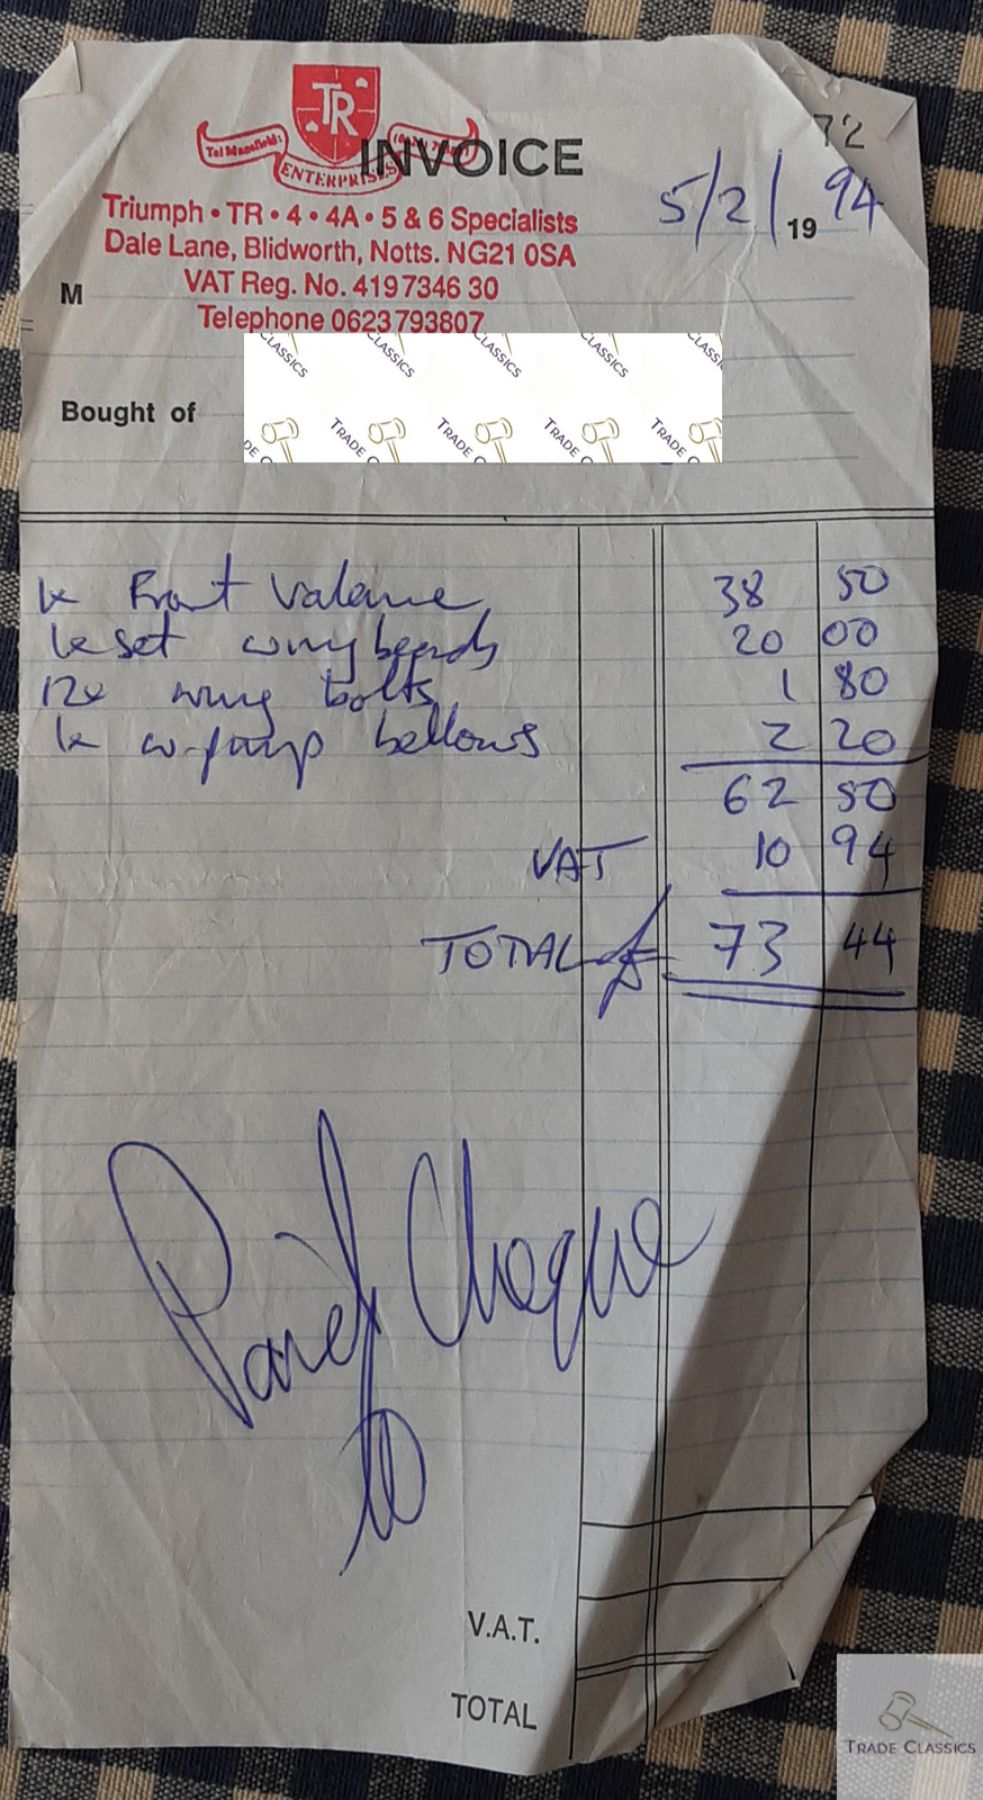 TR
Tel Mansfield:
ENTERPRISES
INVOICE
72
5/2/ 19 94
Triumph • TR • 4 • 4A • 5 & 6 Specialists
Dale Lane, Blidworth, Notts. NG21 0SA
VAT Reg. No. 419 7346 30
M
Telephone 0623 793807
CLASSICS CLASSICS CLASSICS CLASSICS CLASSI
Bought of
DE C TRADE C TRADE C TRADE C TRADE C
1x Front Valance 38 50
1x set wing beads 20 00
12x wing bolts 1 80
1x w-pump bellows 2 20
62 50
VAT 10 94
TOTAL £ 73 44
Paid Cheque
V.A.T.
TOTAL
TRADE CLASSICS